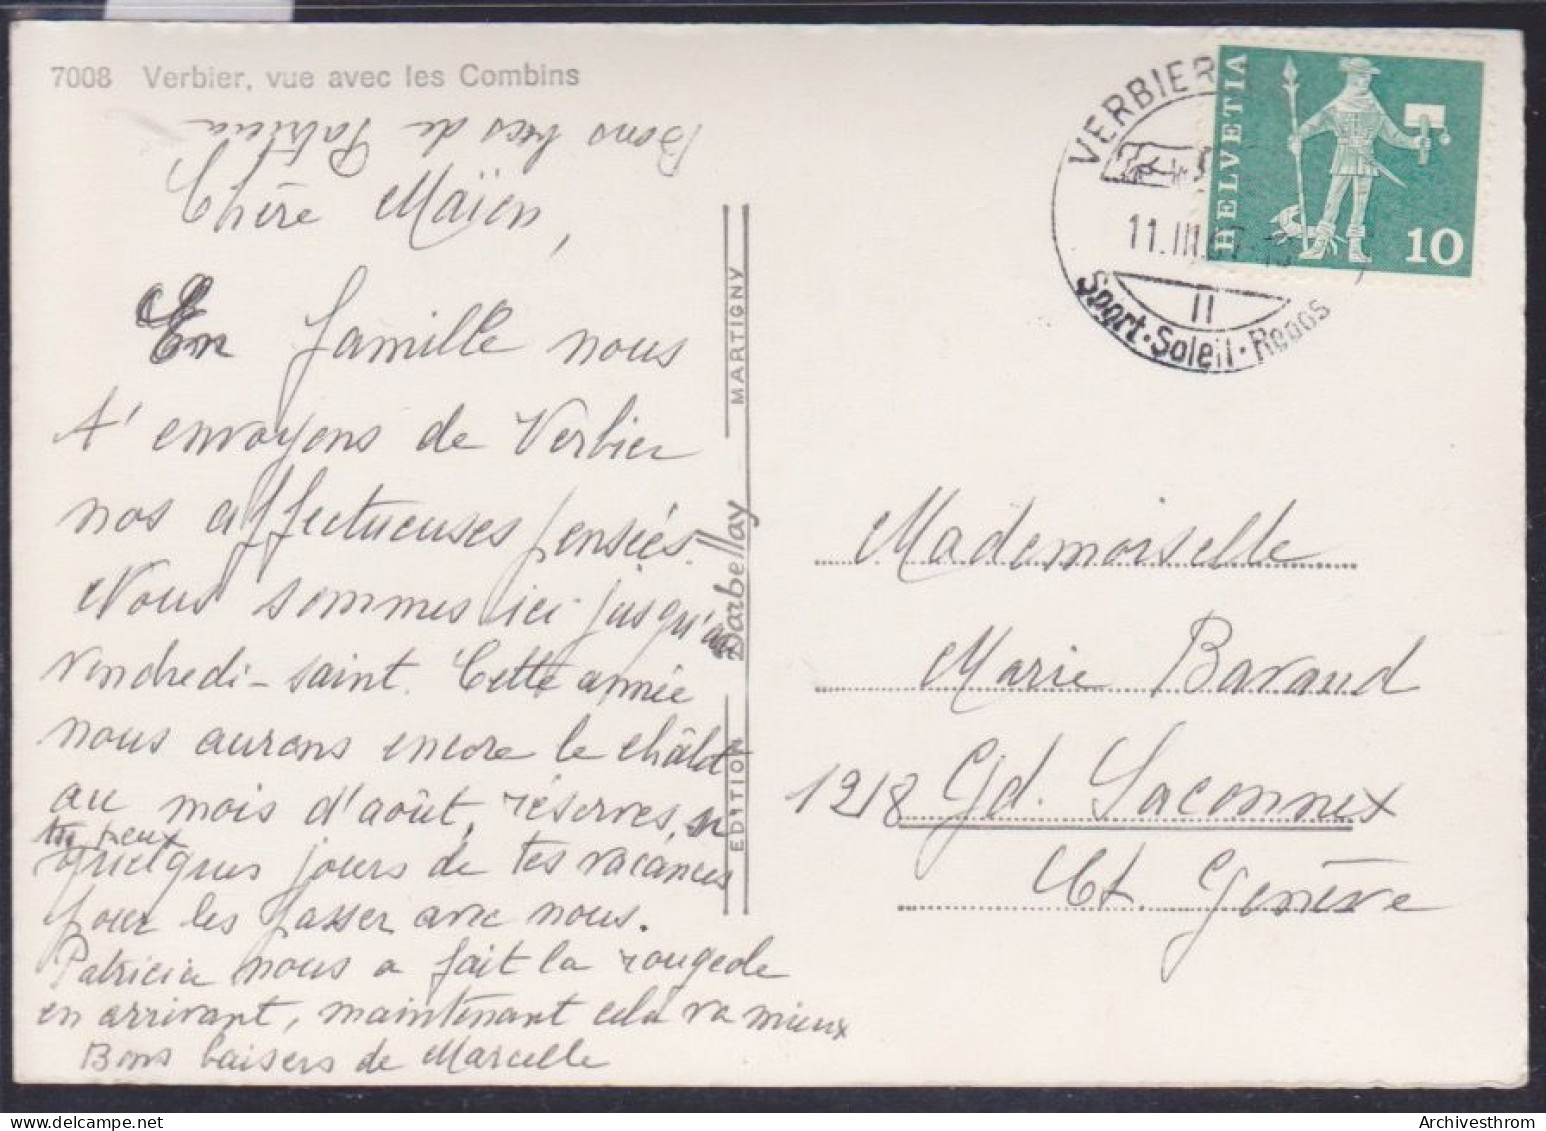 7008 Verbier, vue avec les Combins
Bons becs de Patricia
Chère Maïon,
En famille nous
t'envoyons de Verbier
nos affectueuses pensées.
Nous sommes ici jusqu'au
vendredi-saint. Cette année
nous aurons encore le châlet
au mois d'août, réserves, si
tu peux
quelques jours de tes vacances
pour les passer avec nous.
Patricia nous a fait la rougeole
en arrivant, maintenant cela va mieux
Bons baisers de Marcelle
EDITION Darbellay MARTIGNY
VERBIER
11.III.67
Sport·Soleil·Repos
HELVETIA
10
Mademoiselle
Marie Baraud
1218 Gd. Saconnex
Ct. Genève
Archivesthrom